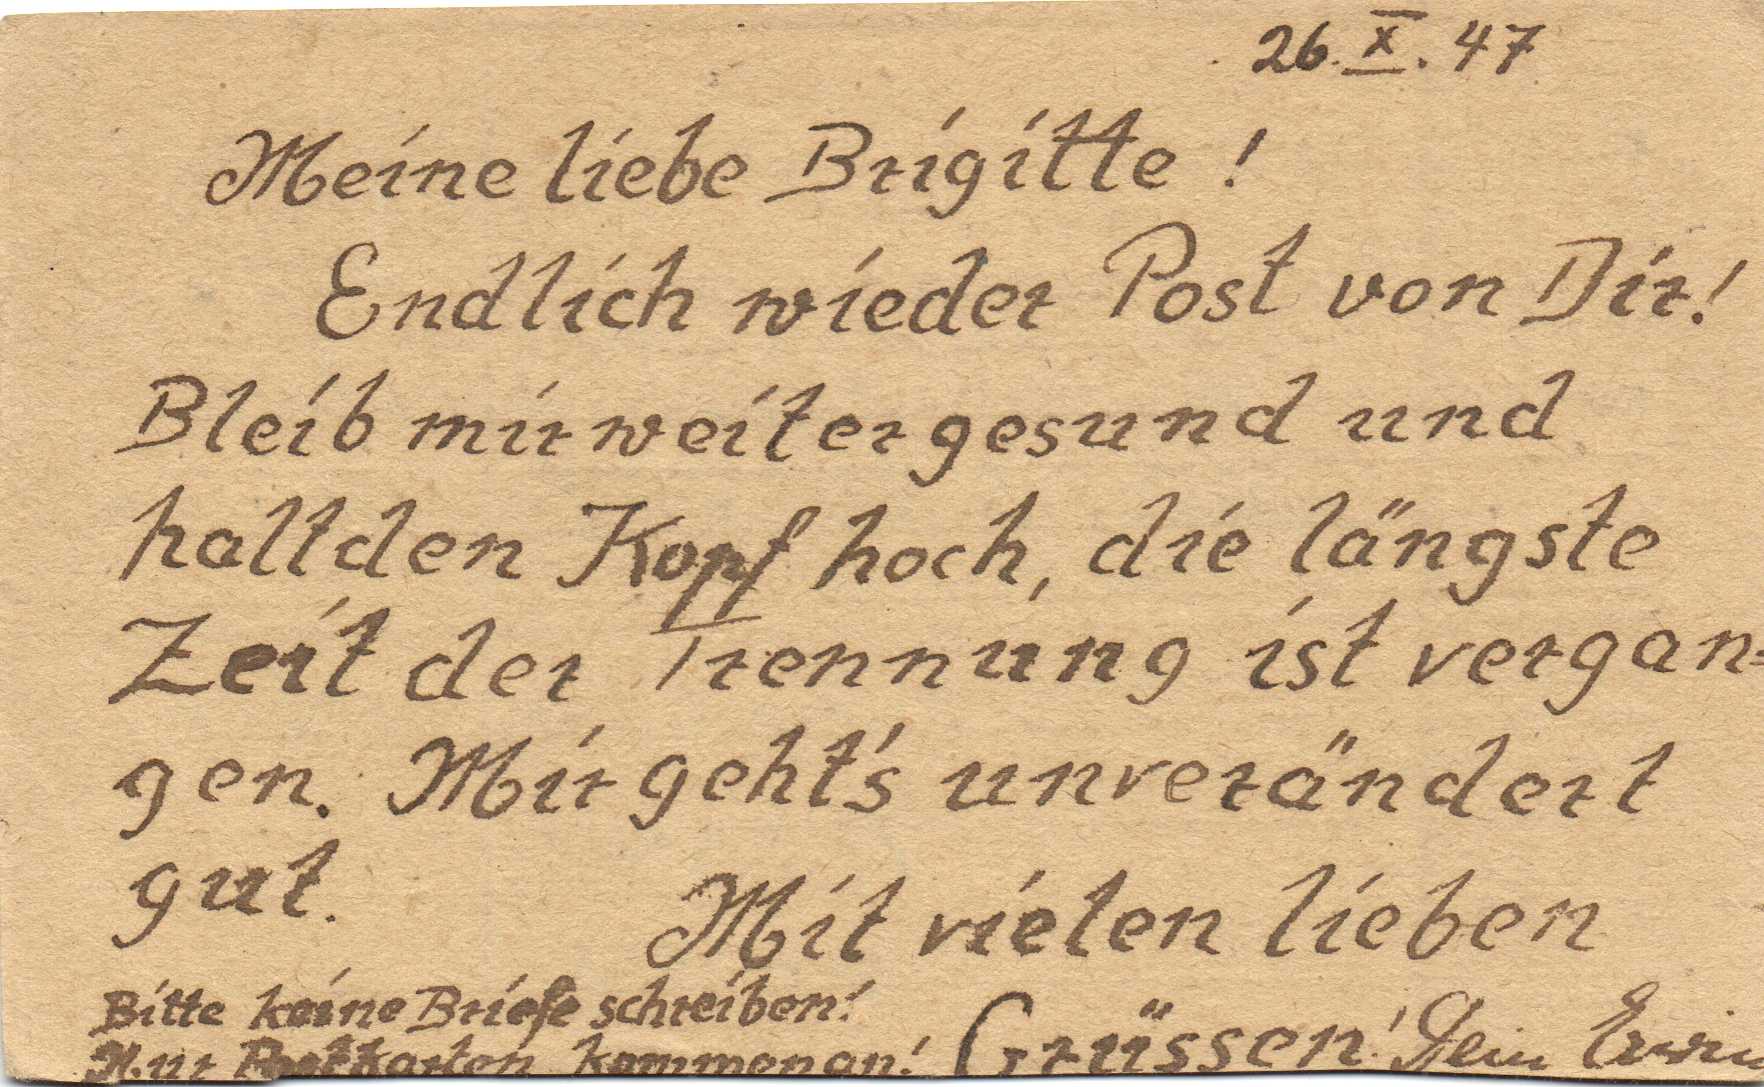 26.X.47
Meine liebe Brigitte!
Endlich wieder Post von Dir!
Bleib mir weiter gesund und
halt den Kopf hoch, die längste
Zeit der Trennung ist vergan-
gen. Mir geht's unverändert
gut. Mit vielen lieben
Grüssen! Dein Erwin
Bitte keine Briefe schreiben!
Nur Postkarten kommen an!